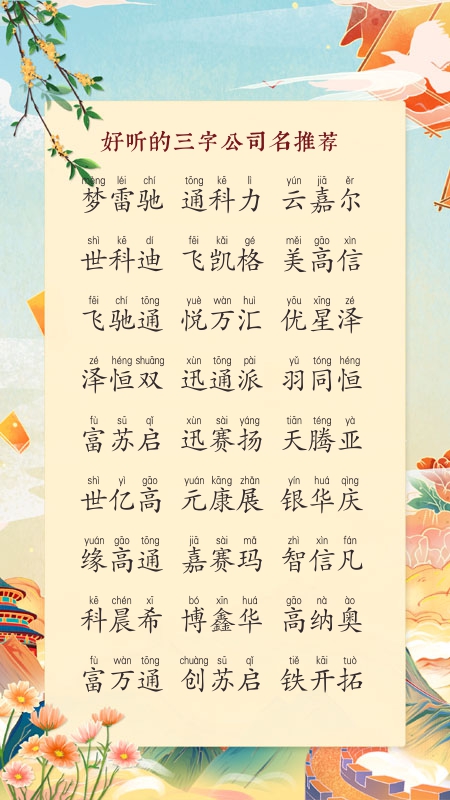 好听的三字公司名推荐
mèng léi chí tōng kē lì yún jiā ěr
梦雷驰 通科力 云嘉尔
shì kē dí fēi kǎi gé měi gāo xìn
世科迪 飞凯格 美高信
fēi chí tōng yuè wàn huì yōu xīng zé
飞驰通 悦万汇 优星泽
zé héng shuāng xùn tōng pài yǔ tóng héng
泽恒双 迅通派 羽同恒
fù sū qǐ xùn sài yáng tiān téng yà
富苏启 迅赛扬 天腾亚
shì yì gāo yuán kāng zhǎn yín huá qìng
世亿高 元康展 银华庆
yuán gāo tōng jiā sài mǎ zhì xìn fán
缘高通 嘉赛玛 智信凡
kē chén xī bó xīn huá gāo nà ào
科晨希 博鑫华 高纳奥
fù wàn tōng chuàng sū qǐ tiě kāi tuò
富万通 创苏启 铁开拓